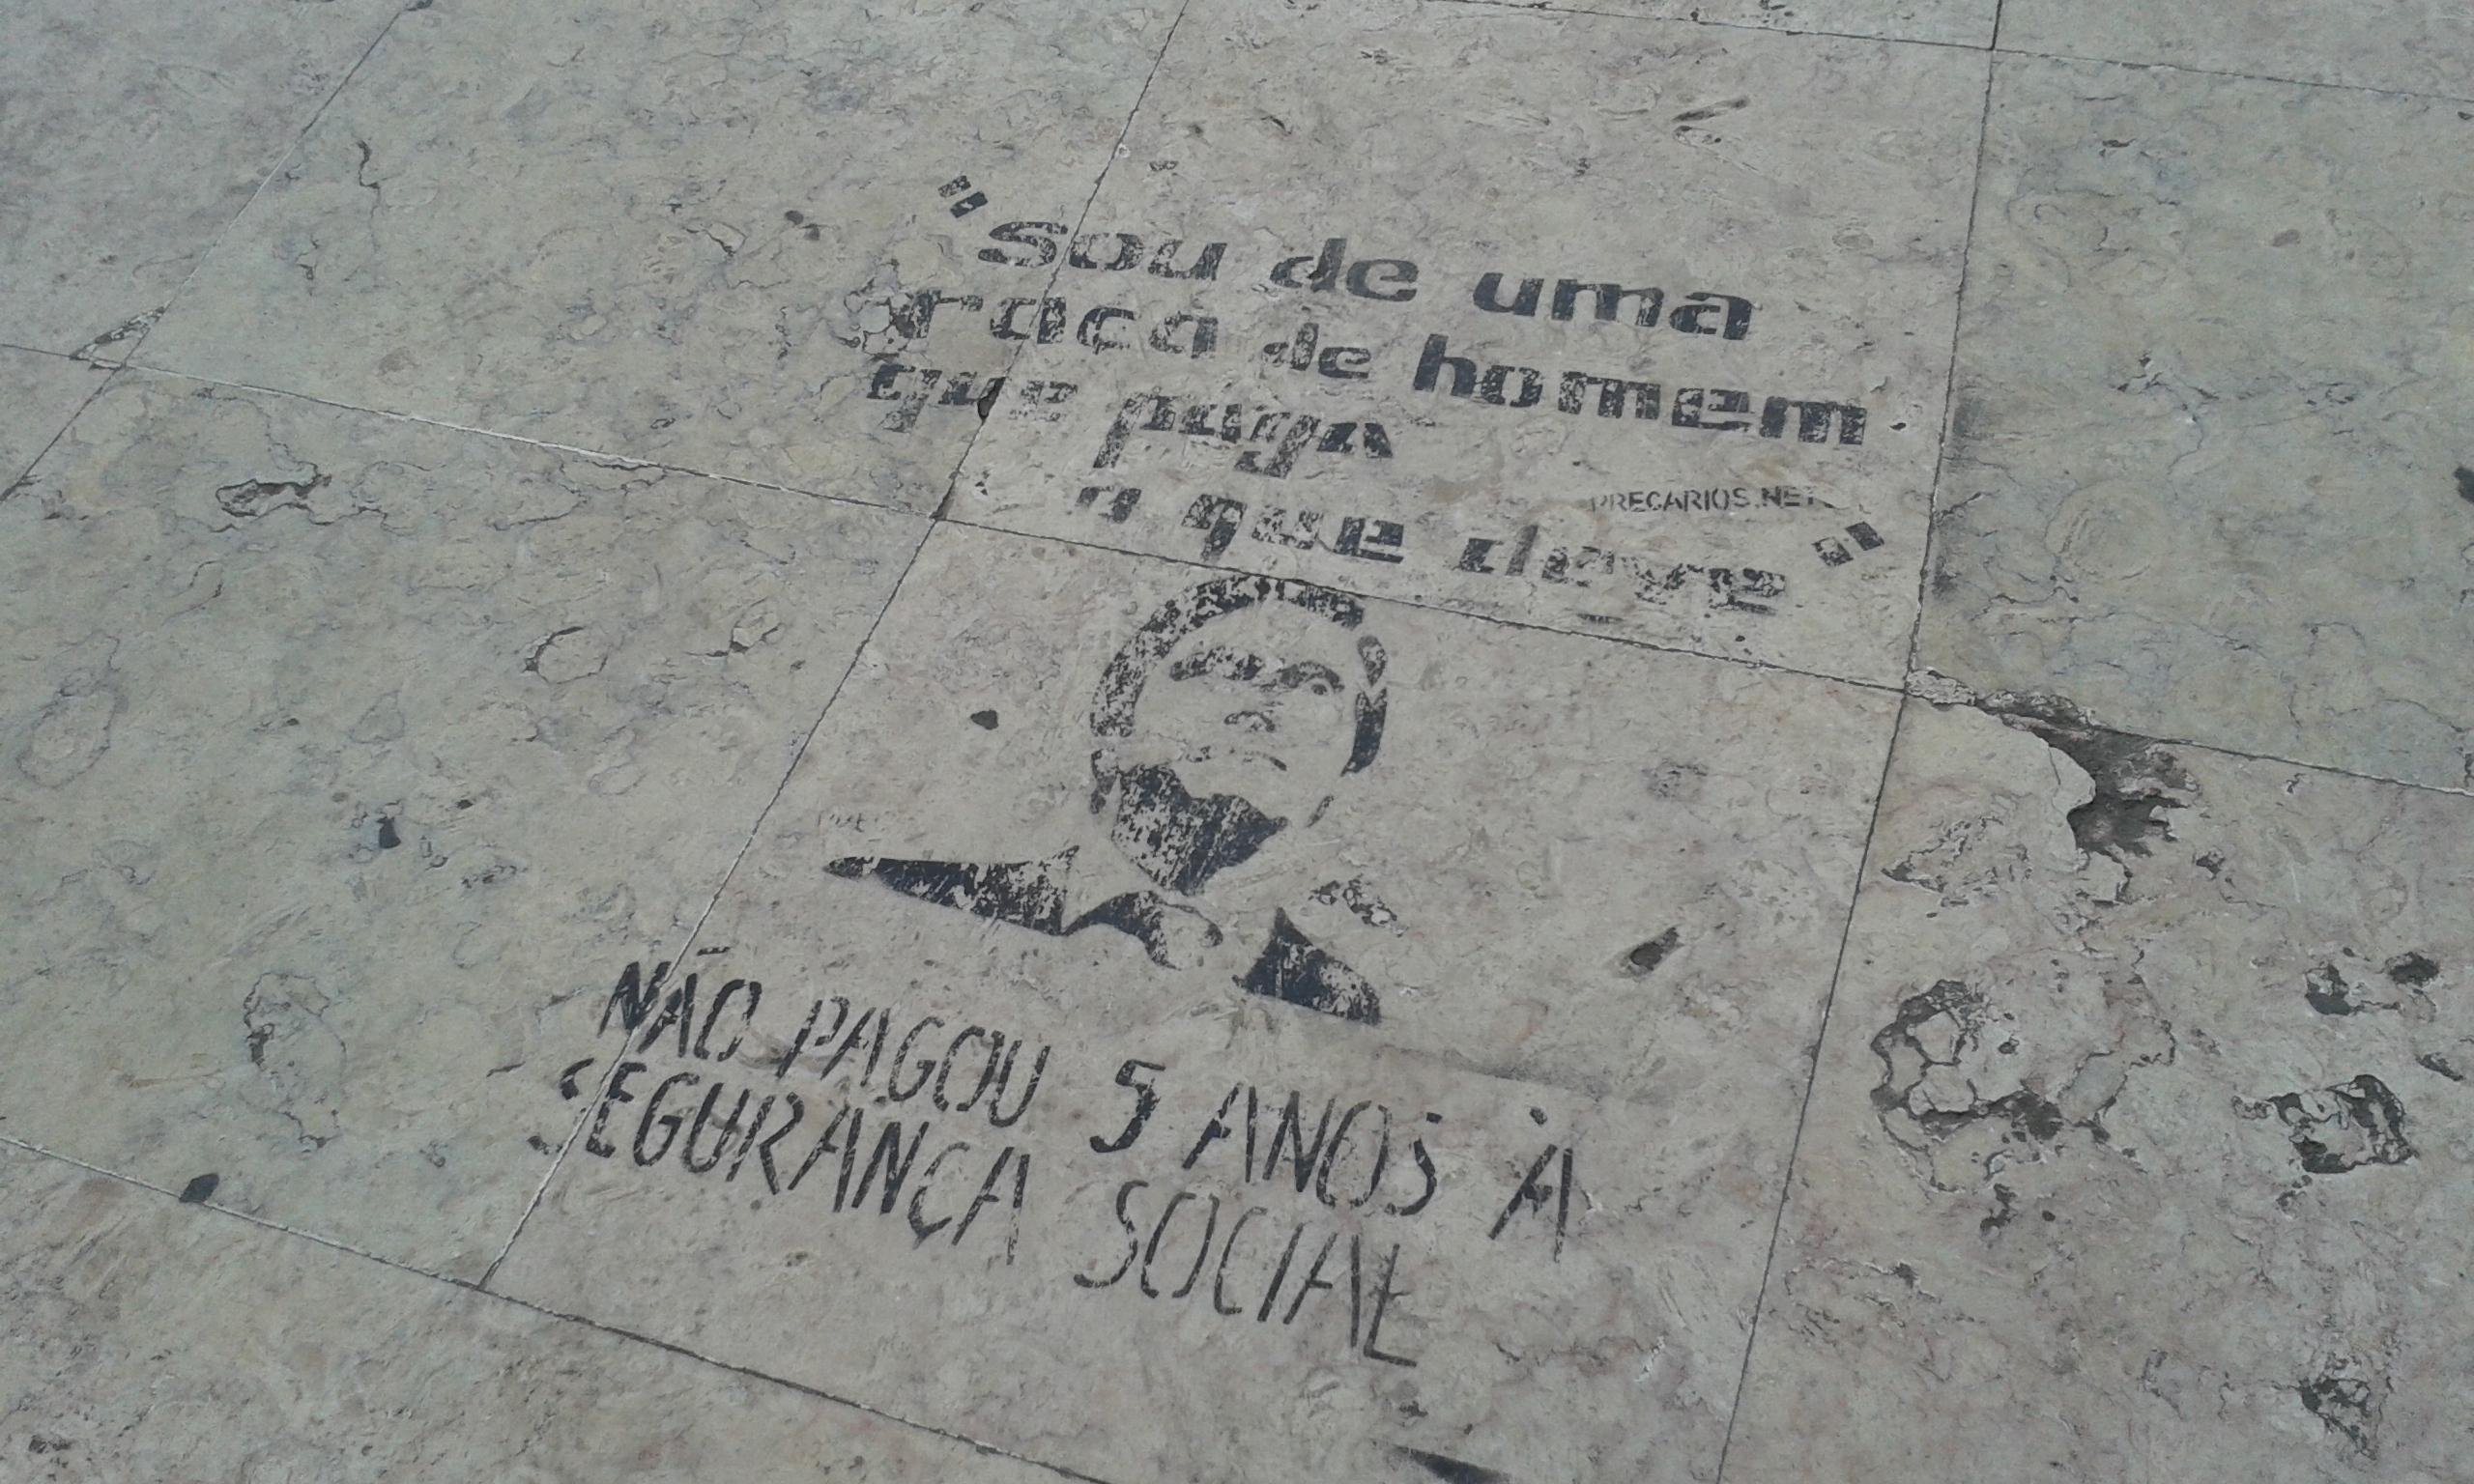 "sou de uma
raca de homem
que paga
o que deve"
PRECARIOS.NET
NÃO PAGOU 5 ANOS À
SEGURANCA SOCIAL